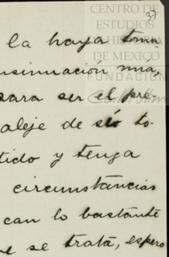 CENTRO DE
ESTUDIOS
DE MEXICO
FUNDACIÓN
37
la haya toma
nsinuación má
para ser el pre
aleje de sí to
tido y tenga
circumstancias
can lo bastante
ue se trata, espero